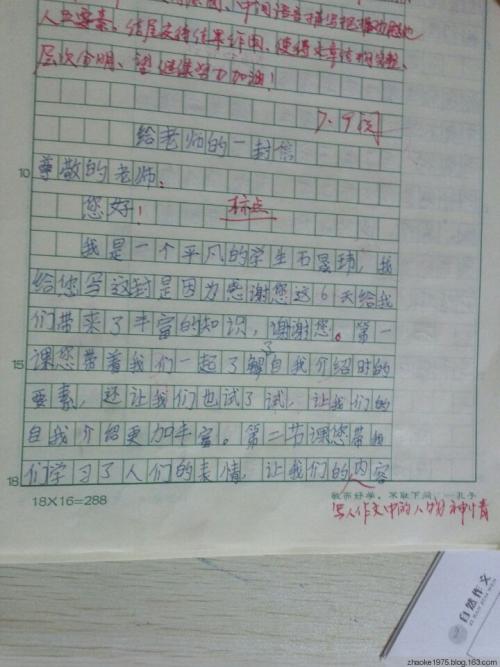 人四要素。结尾交待结果作用，使得文章结构完整、
层次分明、望继续努力加油！
7.9阅
给老师的一封信
10
尊敬的老师：
您好！
标点
我是一个平凡的学生石昱玮，我
给您写这封是因为感谢您这6天给我
们带来了丰富的知识，谢谢您。第一
15
课您带着我们一起了解了自我介绍时的
要素，还让我们也试了试，让我们的
自我介绍更加丰富。第二节课您带我
18
们学习了人们的表情，让我们的内容
18X16=288
敏而好学，不耻下问。—孔子
写人作文中的人物神情
自然作文
zhaoke1975.blog.163.com